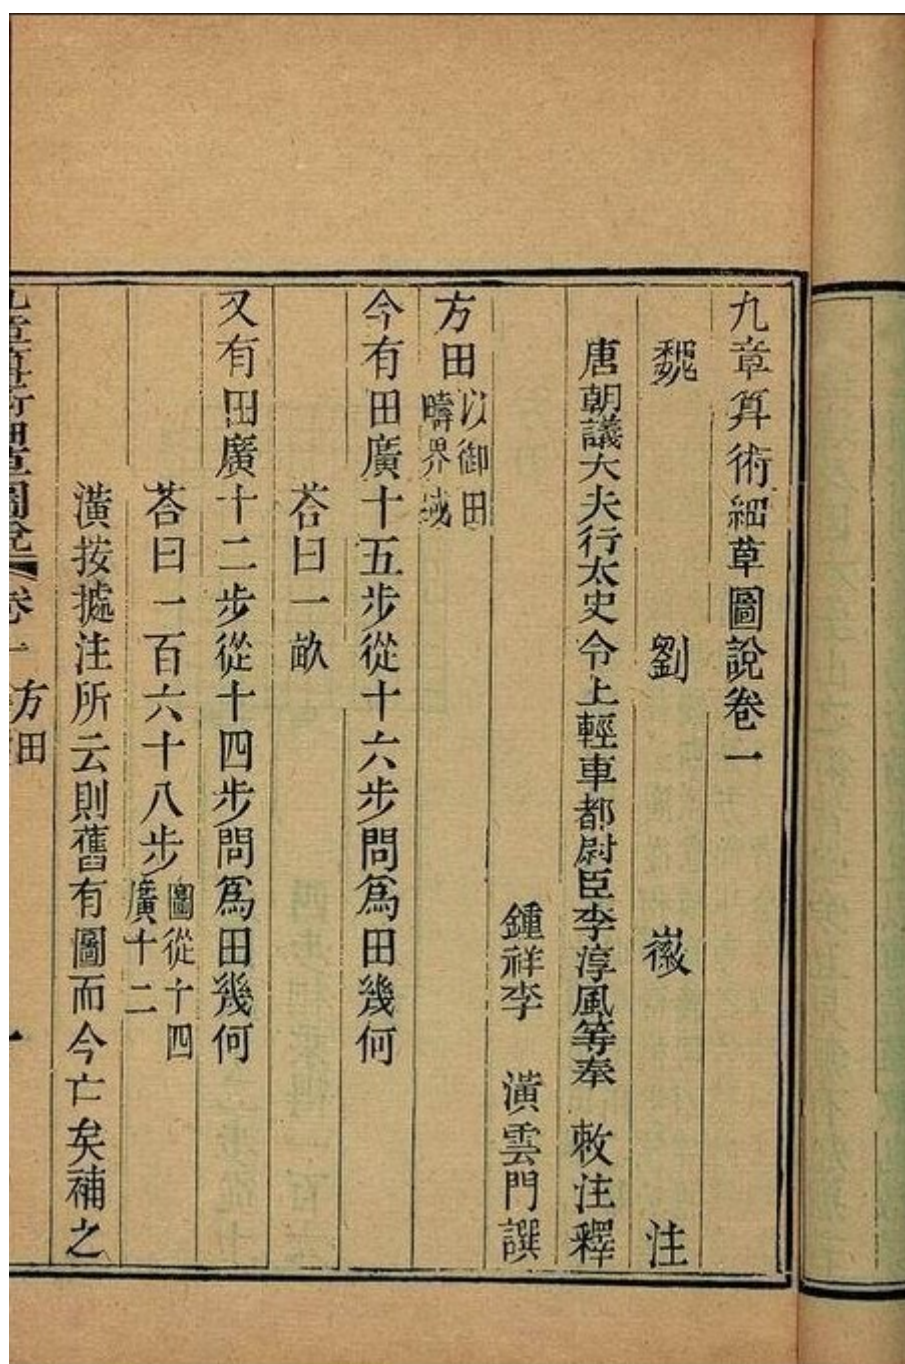 九章算術細草圖說卷一
魏　劉　徽　注
唐朝議大夫行太史令上輕車都尉臣李淳風等奉　敕注釋
鍾祥李　潢雲門譔
方田以御田疇界域
今有田廣十五步從十六步問爲田幾何
荅曰一畝
又有田廣十二步從十四步問爲田幾何
荅曰一百六十八步圖從十四廣十二
潢按據注所云則舊有圖而今亡矣補之
九章算術細草圖說　卷一　方田　一